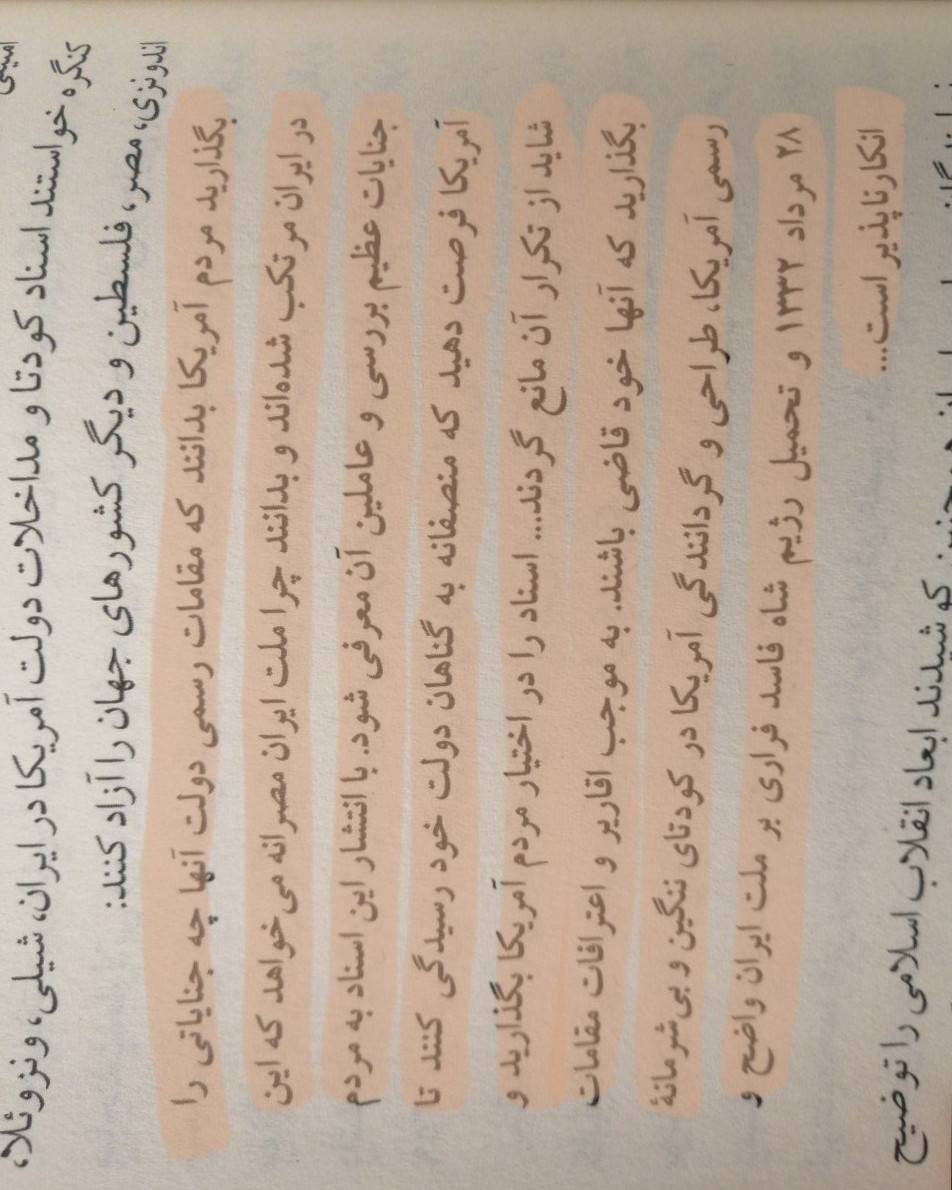 کنگره خواستند اسناد کودتا و مداخلات دولت آمریکا در ایران، شیلی، ونزوئلا،
اندونزی، مصر، فلسطین و دیگر کشورهای جهان را آزاد کنند:
بگذارید مردم آمریکا بدانند که مقامات رسمی دولت آنها چه جنایاتی را
در ایران مرتکب شده‌اند و بدانند چرا ملت ایران مصرانه می‌خواهد که این
جنایات عظیم بررسی و عاملین آن معرفی شود. با انتشار این اسناد به مردم
آمریکا فرصت دهید که منصفانه به گناهان دولت خود رسیدگی کنند تا
شاید از تکرار آن مانع گردند... اسناد را در اختیار مردم آمریکا بگذارید و
بگذارید که آنها خود قاضی باشند. به موجب اقاریر و اعترافات مقامات
رسمی آمریکا، طراحی و گردانندگی آمریکا در کودتای ننگین و بی‌شرمانهٔ
۲۸ مرداد ۱۳۳۲ و تحمیل رژیم شاه فاسد فراری بر ملت ایران واضح و
انکارناپذیر است...
کوشیدند ابعاد انقلاب اسلامی را توضیح